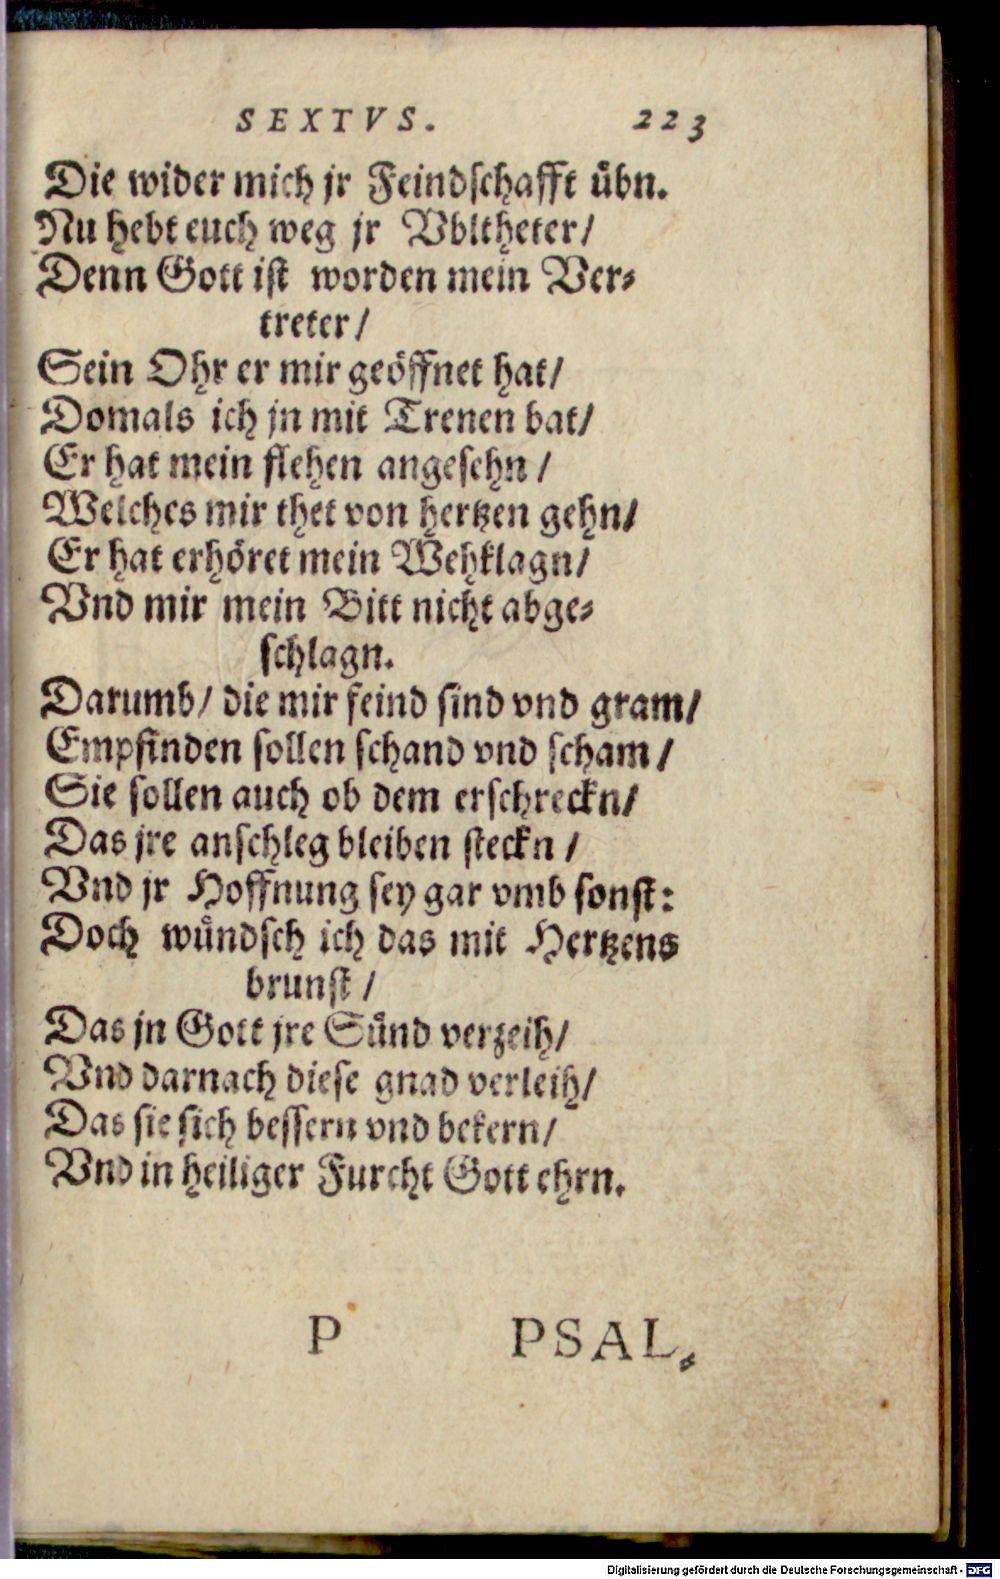 SEXTVS. 223
Die wider mich jr Feindschafft übn.
Nu hebt euch weg jr Vbltheter/
Denn Gott ist worden mein Ver-
treter/
Sein Ohr er mir geöffnet hat/
Domals ich jn mit Trenen bat/
Er hat mein flehen angesehn/
Welches mir thet von hertzen gehn/
Er hat erhöret mein Wehklagn/
Vnd mir mein Bitt nicht abge-
schlagn.
Darumb/ die mir feind sind vnd gram/
Empfinden sollen schand vnd scham/
Sie sollen auch ob dem erschreckn/
Das jre anschleg bleiben steckn/
Vnd jr Hoffnung sey gar vmb sonst:
Doch wündsch ich das mit Hertzens
brunst/
Das jn Gott jre Sünd verzeih/
Vnd darnach diese gnad verleih/
Das sie sich bessern vnd bekern/
Vnd in heiliger Furcht Gott ehrn.
P PSAL.
Digitalisierung gefördert durch die Deutsche Forschungsgemeinschaft - DFG